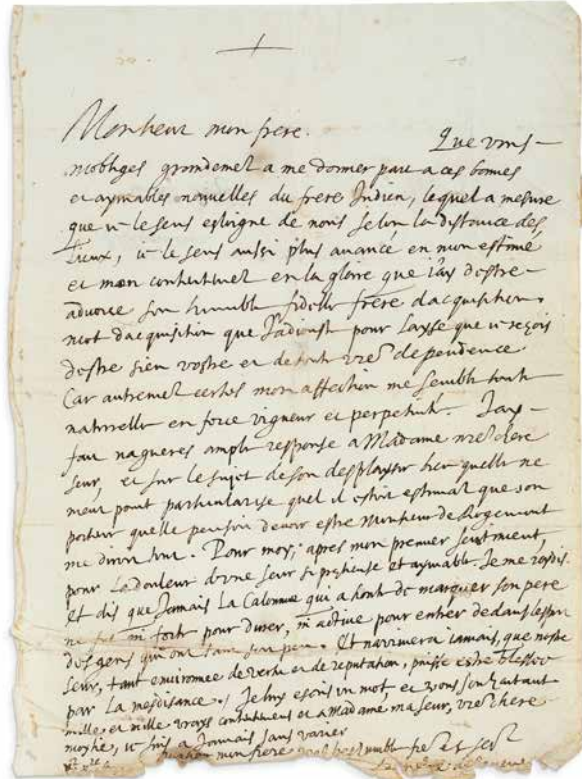 Monsieur mon frere.
Que vous
mobliges grandemet a me donner part a ces bonnes
et aymables nouvelles du frere Indien, lequel a mesure
que ie le sens esloigne de nous selon la distance des
lieux, ie le sens aussi plus avance en mon estime
et mon contentemet en la gloire que iay destre
advoue son humble fidelle frere dacquisition.
mot dacquisition que Jadiouste pour layse que ie reçois
destre sien vostre et de toute vre dependence.
Car autremet certes mon affection me semble toute
naturelle en force vigueur et perpetuite. Jay
fait nagueres ample response a Madame vre chere
seur, et sur le sujet de son desplaysir bien quelle ne
meut point particularise quel il estoit estimat que son
porteur quelle pensoit devoir estre Monsieur de
me diroit tout. Pour moy, apres mon premier sentiment,
pour la douleur dune seur si pretieuse et aymable. Je me
Et dis que Jamais La Calomnie qui a honte de marquer son pere
ne fut ni forte pour durer, ni active pour entrer dedans lesprit
des gens qui ont Et narrivera iamais, que nostre
seur, tant environnee de vertu et de reputation, puisse estre blessee
par La mesdisance. Je luy escris un mot, et vous souhaitant
mille et mille vrays contentemens et a Madame ma seur, vre chere
moytie, ie suis a Jamais sans varier
mon frere humble